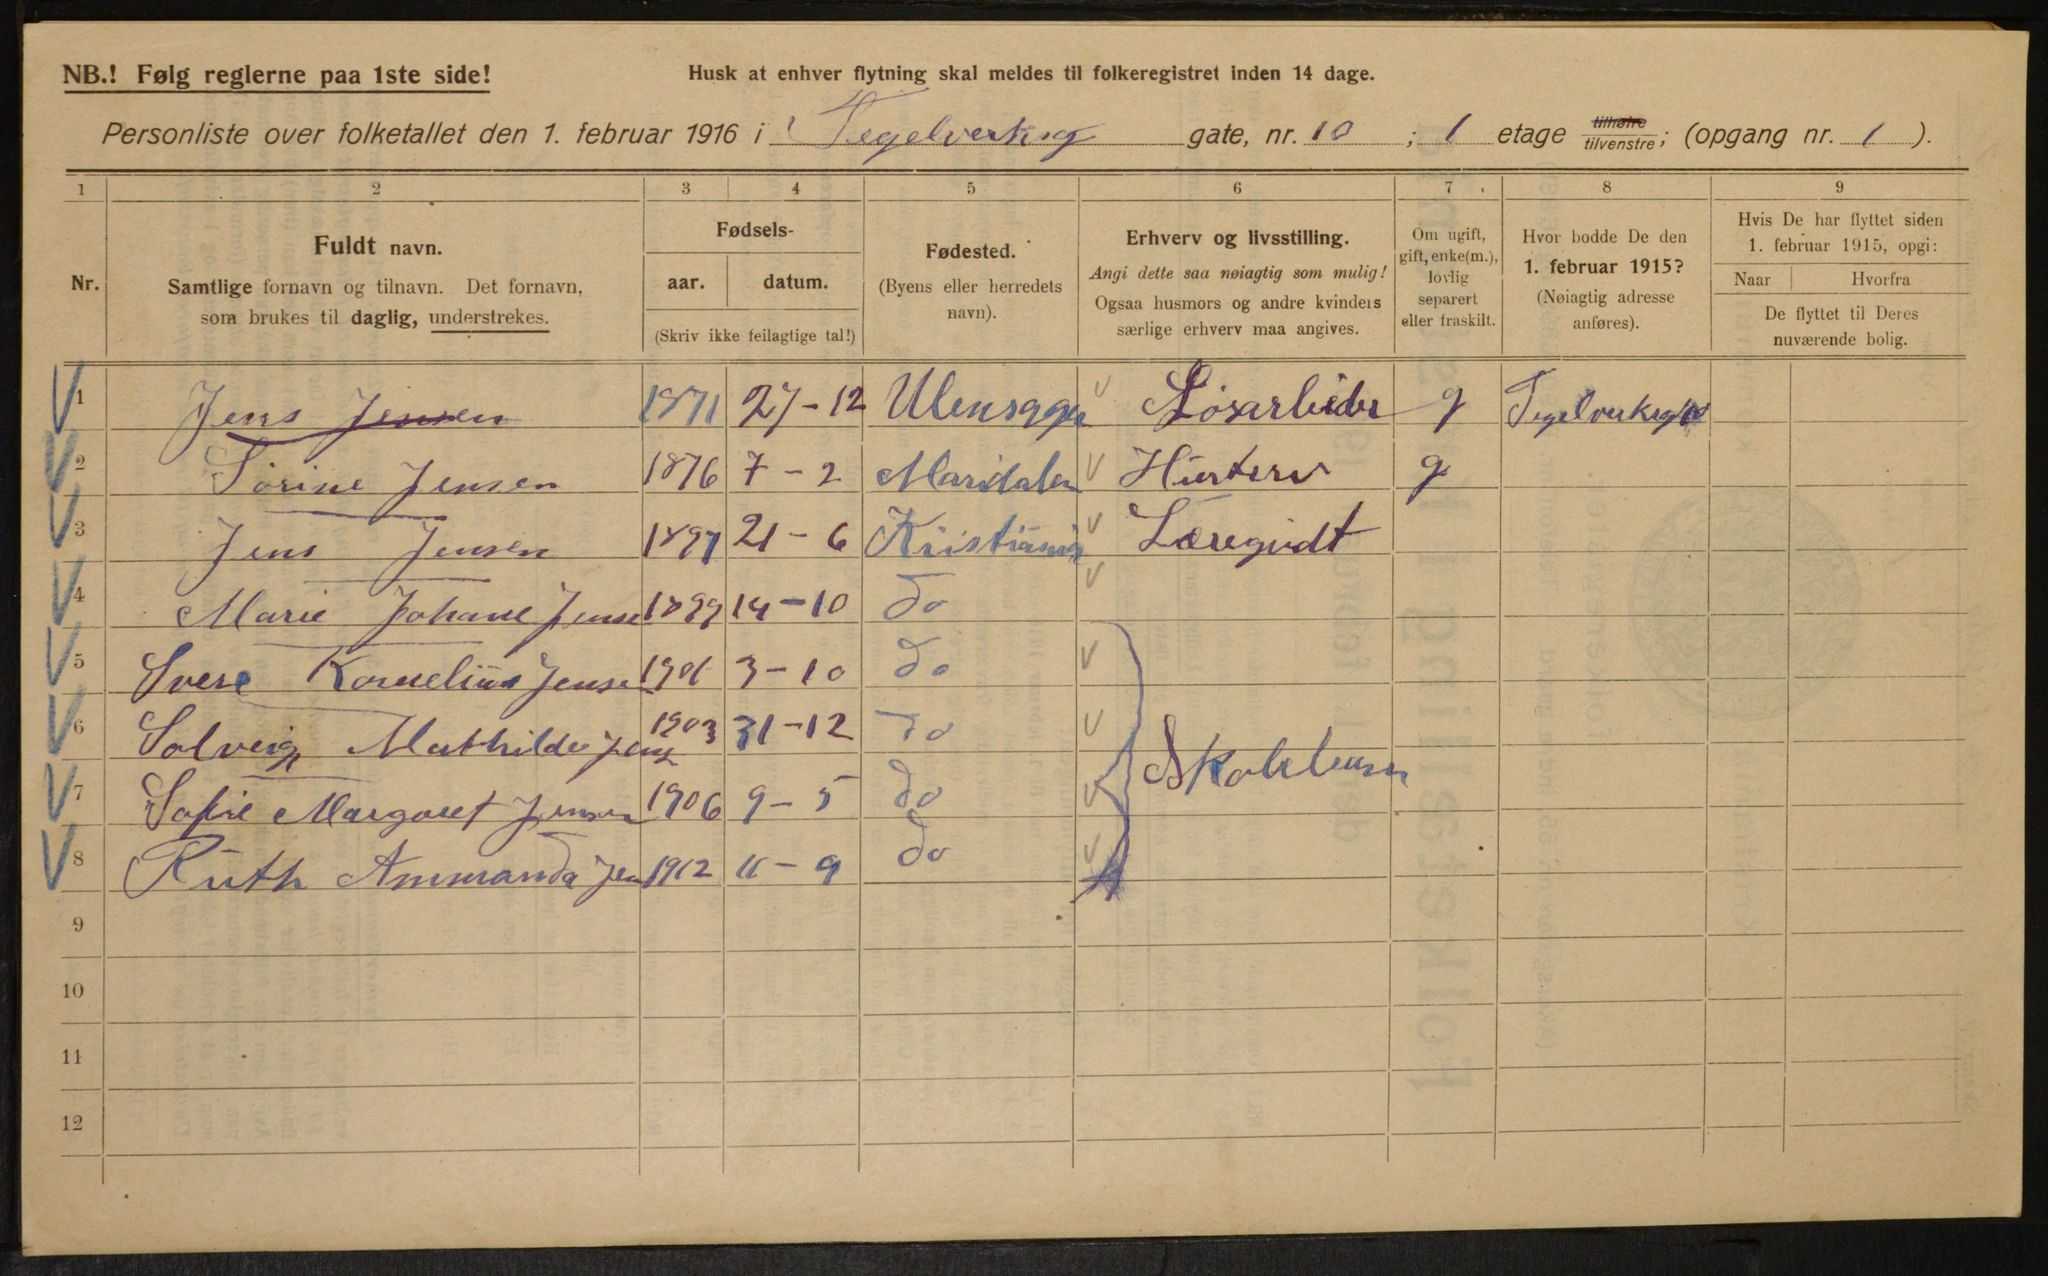 NB.! Følg reglerne paa 1ste side!
Husk at enhver flytning skal meldes til folkeregistret inden 14 dage.
Personliste over folketallet den 1. februar 1916 i Tegelverksg gate, nr. 10 ; 1 etage tilhøire tilvenstre; (opgang nr. 1 ).
1 2 3 4 5 6 7 8 9
Nr.
Fuldt navn.
Samtlige fornavn og tilnavn. Det fornavn,
som brukes til daglig, understrekes.
Fødsels-
aar. datum.
(Skriv ikke feilagtige tal!)
Fødested.
(Byens eller herredets
navn).
Erhverv og livsstilling.
Angi dette saa nøiagtig som mulig!
Ogsaa husmors og andre kvinders
særlige erhverv maa angives.
Om ugift,
gift, enke(m.),
lovlig
separert
eller fraskilt.
Hvor bodde De den
1. februar 1915?
(Nøiagtig adresse
anføres).
Hvis De har flyttet siden
1. februar 1915, opgi:
Naar Hvorfra
De flyttet til Deres
nuværende bolig.
1 Jens Jensen 1871 27-12 Ulensager Løsarbeider g Tegelverksgt
2 Sørine Jensen 1876 7-2 Maridalen g
3 Jens Jensen 1897 21-6 Kristiania Læregudt
4 Marie Johane Jense 1899 14-10 do
5 Svere Kornelius Jensen 1901 3-10 do
6 Solveig Mathilde Jens 1903 31-12 do
7 Sofie Margaret Jensen 1906 9-5 do Skolebarn
8 Ruth Ammanda Jen 1912 11-9 do
9
10
11
12